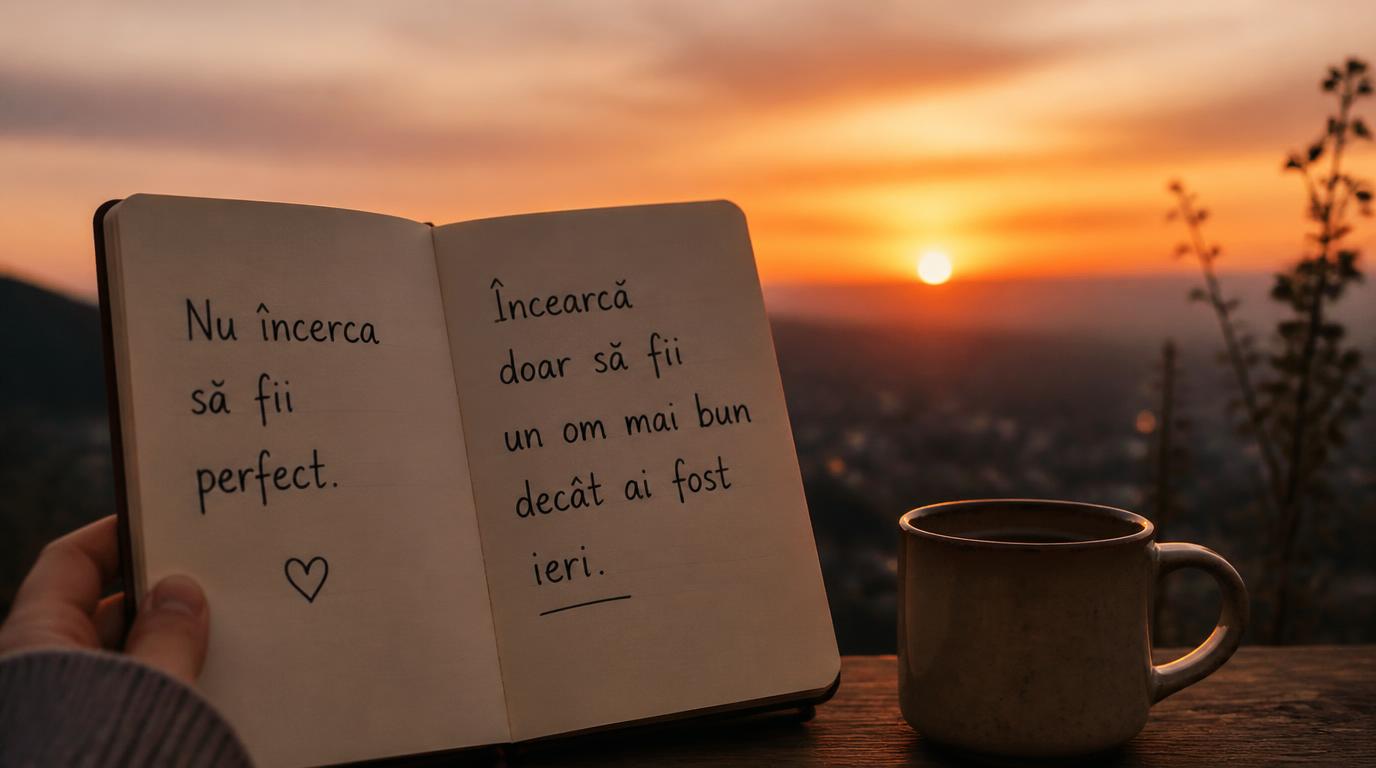 Nu încerca
să fii
perfect.
Încearcă
doar să fii
un om mai bun
decât ai fost
ieri.